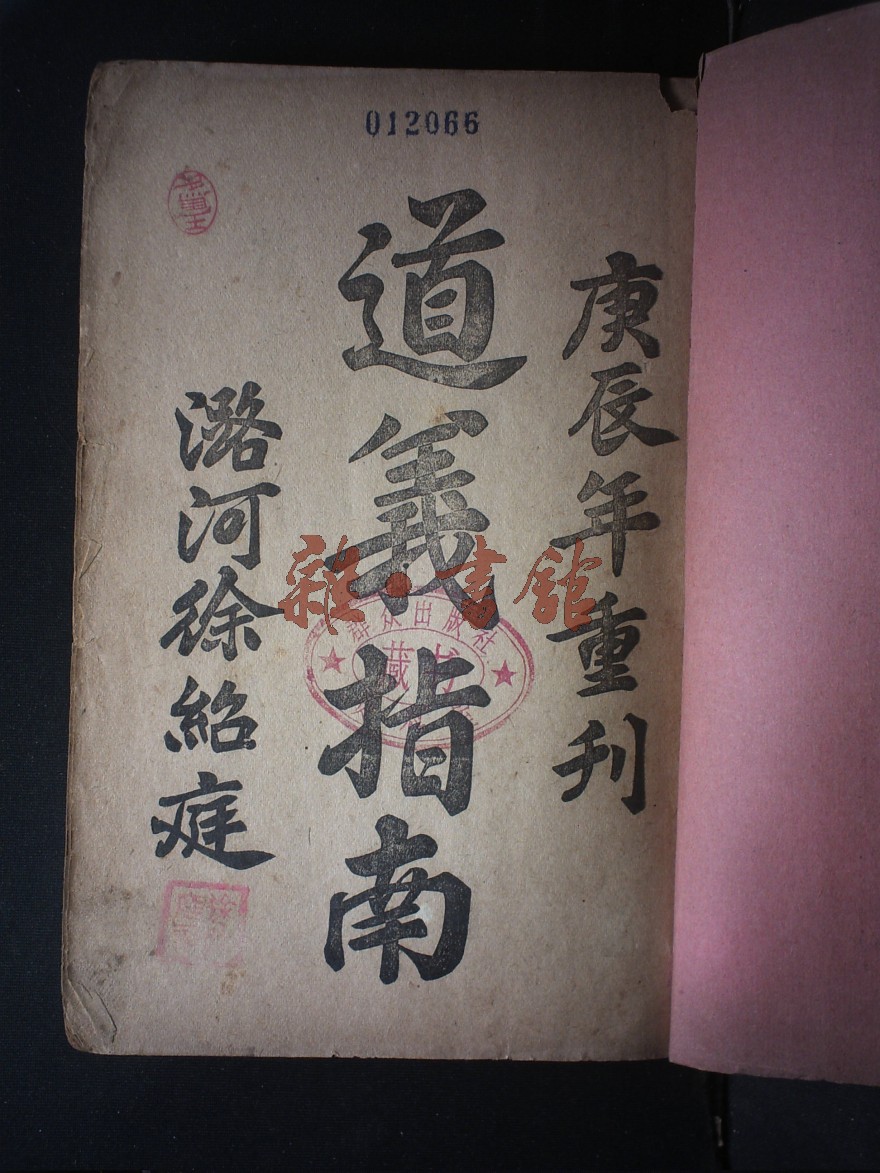 012066
庚辰年重刊
道義指南
潞河徐紹庭
雜·書館
群众出版社
藏书